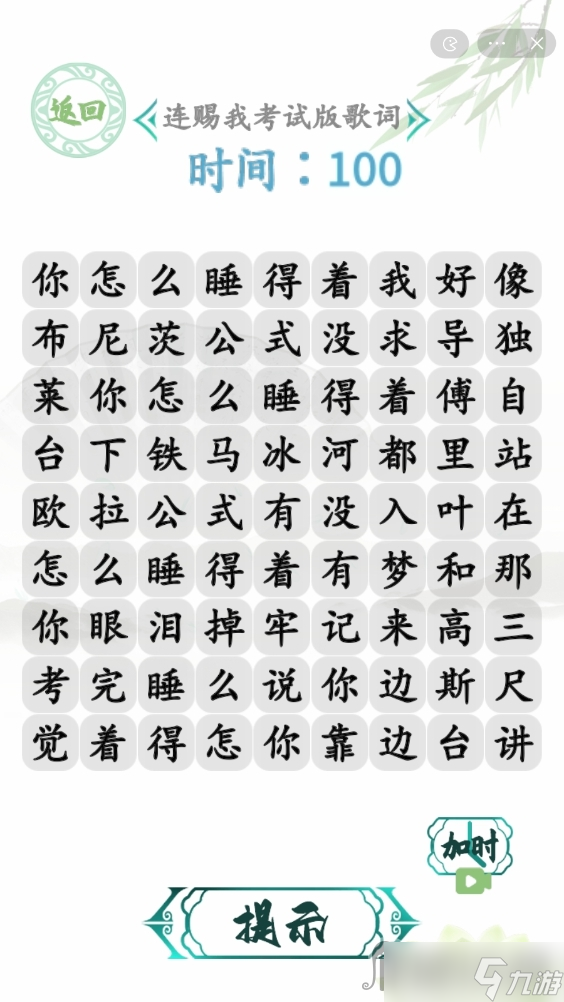 返回
连赐我考试版歌词
时间：100
你怎么睡得着我好像
布尼茨公式没求导独
莱你怎么睡得着傅自
台下铁马冰河都里站
欧拉公式有没入叶在
怎么睡得着有梦和那
你眼泪掉牢记来高三
考完睡么说你边斯尺
觉着得怎你靠边台讲
加时
提示
九游